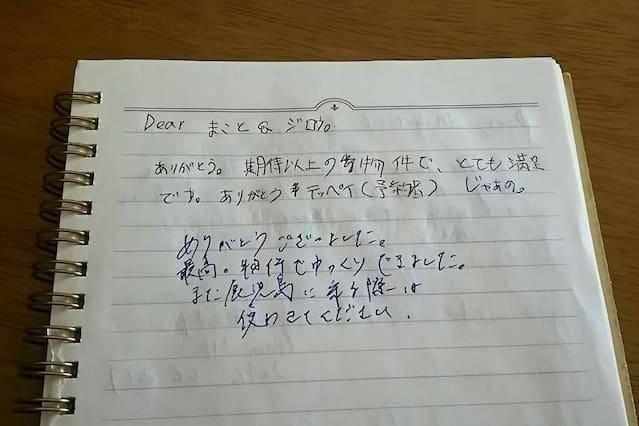 Dear まこと & ジロウ。
ありがとう。期待以上の物件で、とても満足
です。ありがとう テッペイ(予約) じゃあの。
ありがとうございました。
最高の物件でゆっくりできました。
また鹿児島に来る際は
使わせてください。